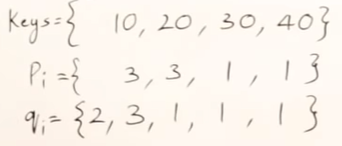 Keys={ 10, 20, 30, 40}
Pi={ 3, 3, 1, 1 }
qi= {2, 3, 1, 1, 1 }